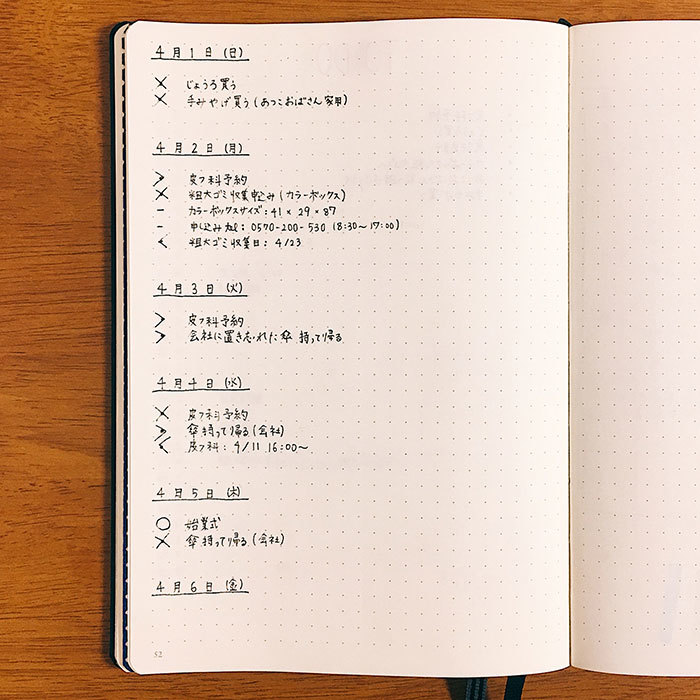 4月1日(日)
× じょうろ買う
× 手みやげ買う(あつこおばさん家用)
4月2日(月)
> 皮フ科予約
× 粗大ゴミ収集申込み(カラーボックス)
- カラーボックスサイズ:41×29×87
- 申し込み tel:0570-200-530 (8:30〜17:00)
< 粗大ゴミ収集日:4/23
4月3日(火)
> 皮フ科予約
> 会社に置き忘れた傘 持って帰る
4月4日(水)
× 皮フ科予約
> 傘持って帰る(会社)
< 皮フ科:4/11 16:00〜
4月5日(木)
○ 始業式
× 傘持って帰る(会社)
4月6日(金)
52